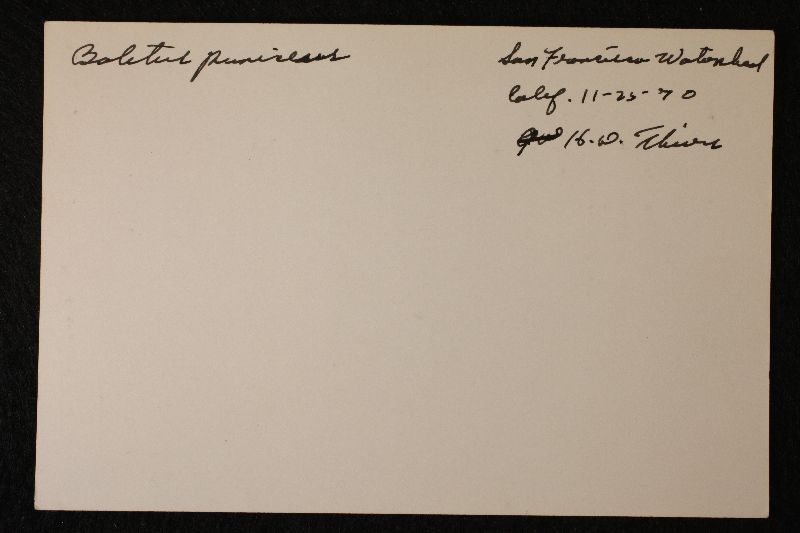 Boletus puniceus
San Francisco Watershed
Calif. 11-25-70
H.D. Thiers